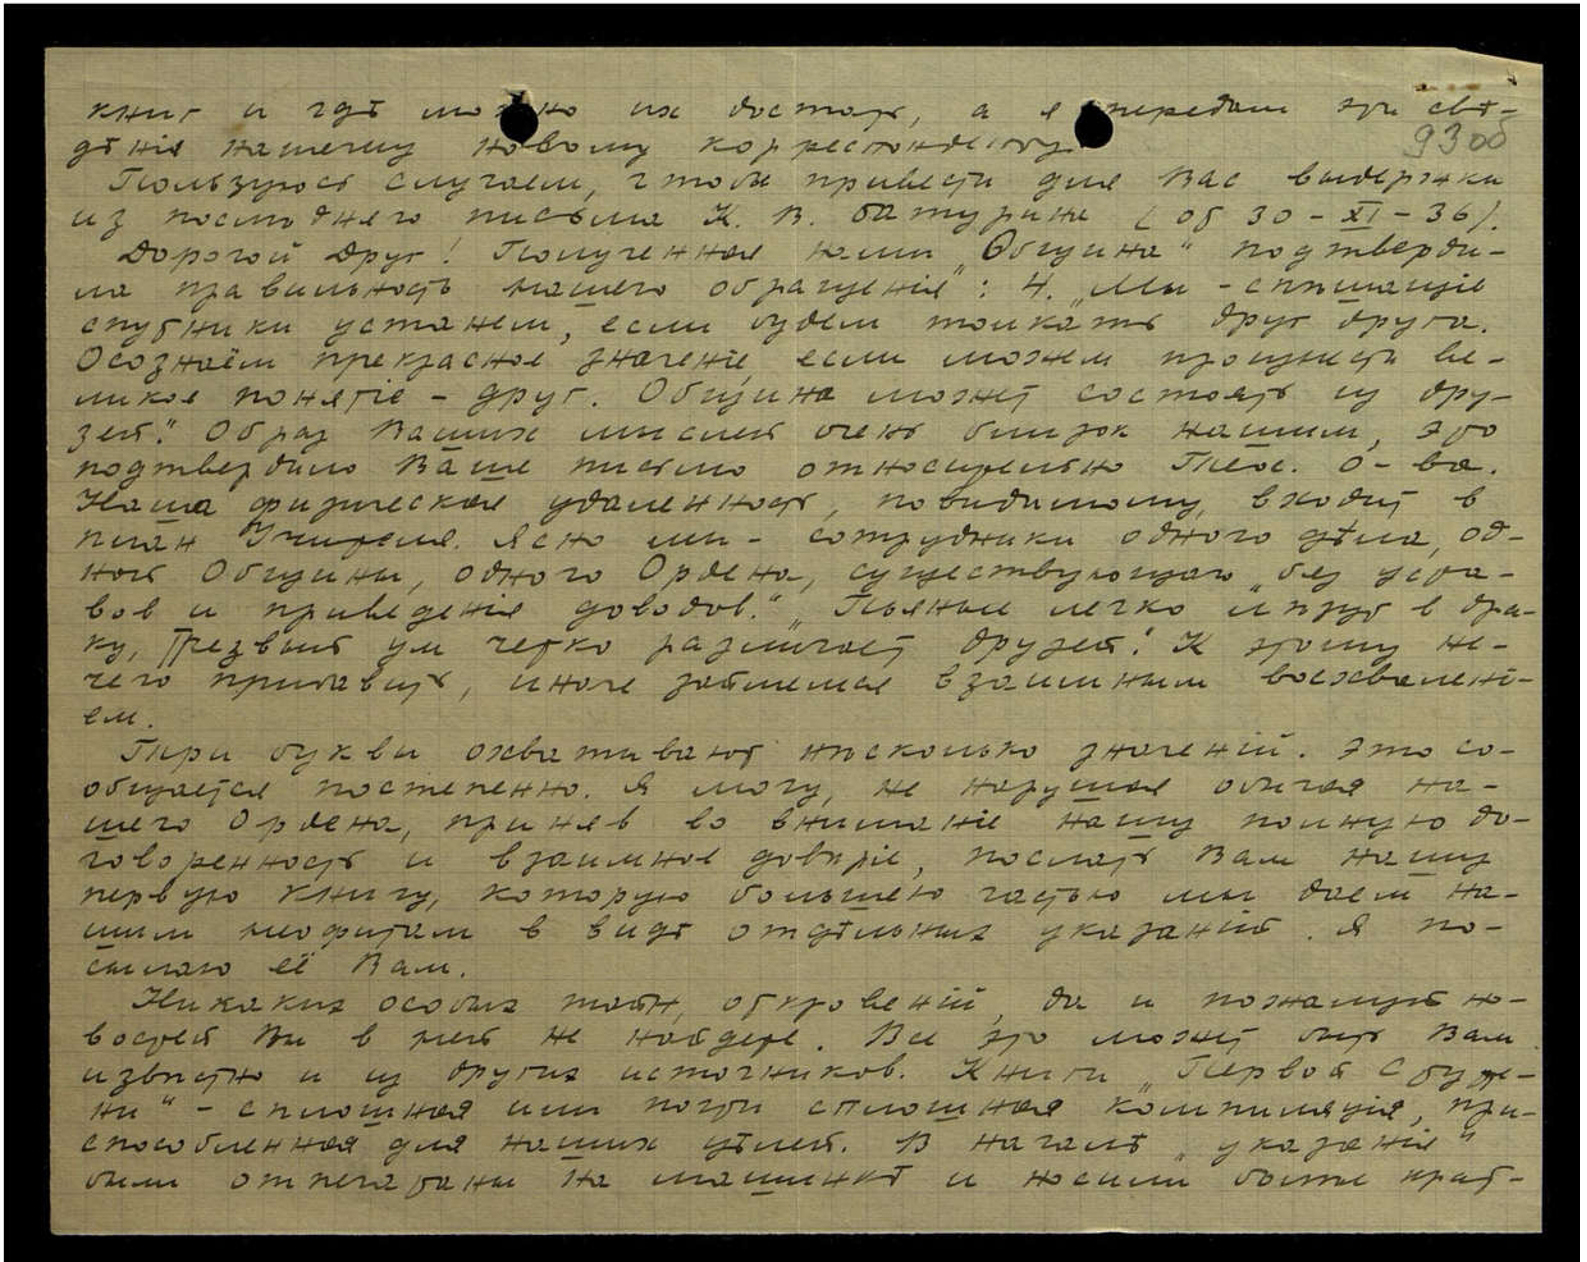 книг и гдѣ можно их достать, а я передам эти свѣ-
93об
дѣнія нашему новому корреспонденту.
Пользуюсь случаем, чтобы привести для Вас выдержки
из послѣдняго письма К. В. Батурина (от 30-XI-36).
Дорогой друг! Полученная нами „Община" подтверди-
ла правильность нашего обращенія": 4. „Мы - спѣшащіе
спутники устанем, если будем толкать друг друга.
Осознаём прекрасное значеніе, если можем произнести ве-
ликое понятіе - друг. Община может состоять из дру-
зей." Образ Ваших мыслей очень близок нашим, это
подтвердило Ваше письмо относительно Теос. О-ва.
Наша физическая удаленность, повидимому, входит в
план Учителя. Ясно мы - сотрудники одного дѣла, од-
ной Общины, одного Ордена, существующаго „без уста-
вов и приведенія доводов." „Пьяные легко лѣзут в дра-
ку, Трезвый ум четко различает друзей." К этому не-
чего прибавить, иначе займемся взаимным восхвалені-
ем.
Три буквы охватывают нѣсколько значеній. Это со-
общается постепенно. Я могу, не нарушая обычая на-
шего Ордена, приняв во вниманіе нашу полную до-
говоренность и взаимное довѣріе, послать Вам нашу
первую книгу, которую большею частью мы даем на-
шим неофитам в видѣ отдѣльных указаній. Я по-
сылаю её Вам.
Никаких особых тайн, откровеній, да и пожалуй но-
востей Вы в ней не найдете. Все это может быть Вам
извѣстно и из других источников. Книги „Первой Ступе-
ни" - сплошная или почти сплошная компиляція, при-
способленная для наших цѣлей. В началѣ „указанія"
были отпечатаны на машинкѣ и носили болѣе крат-